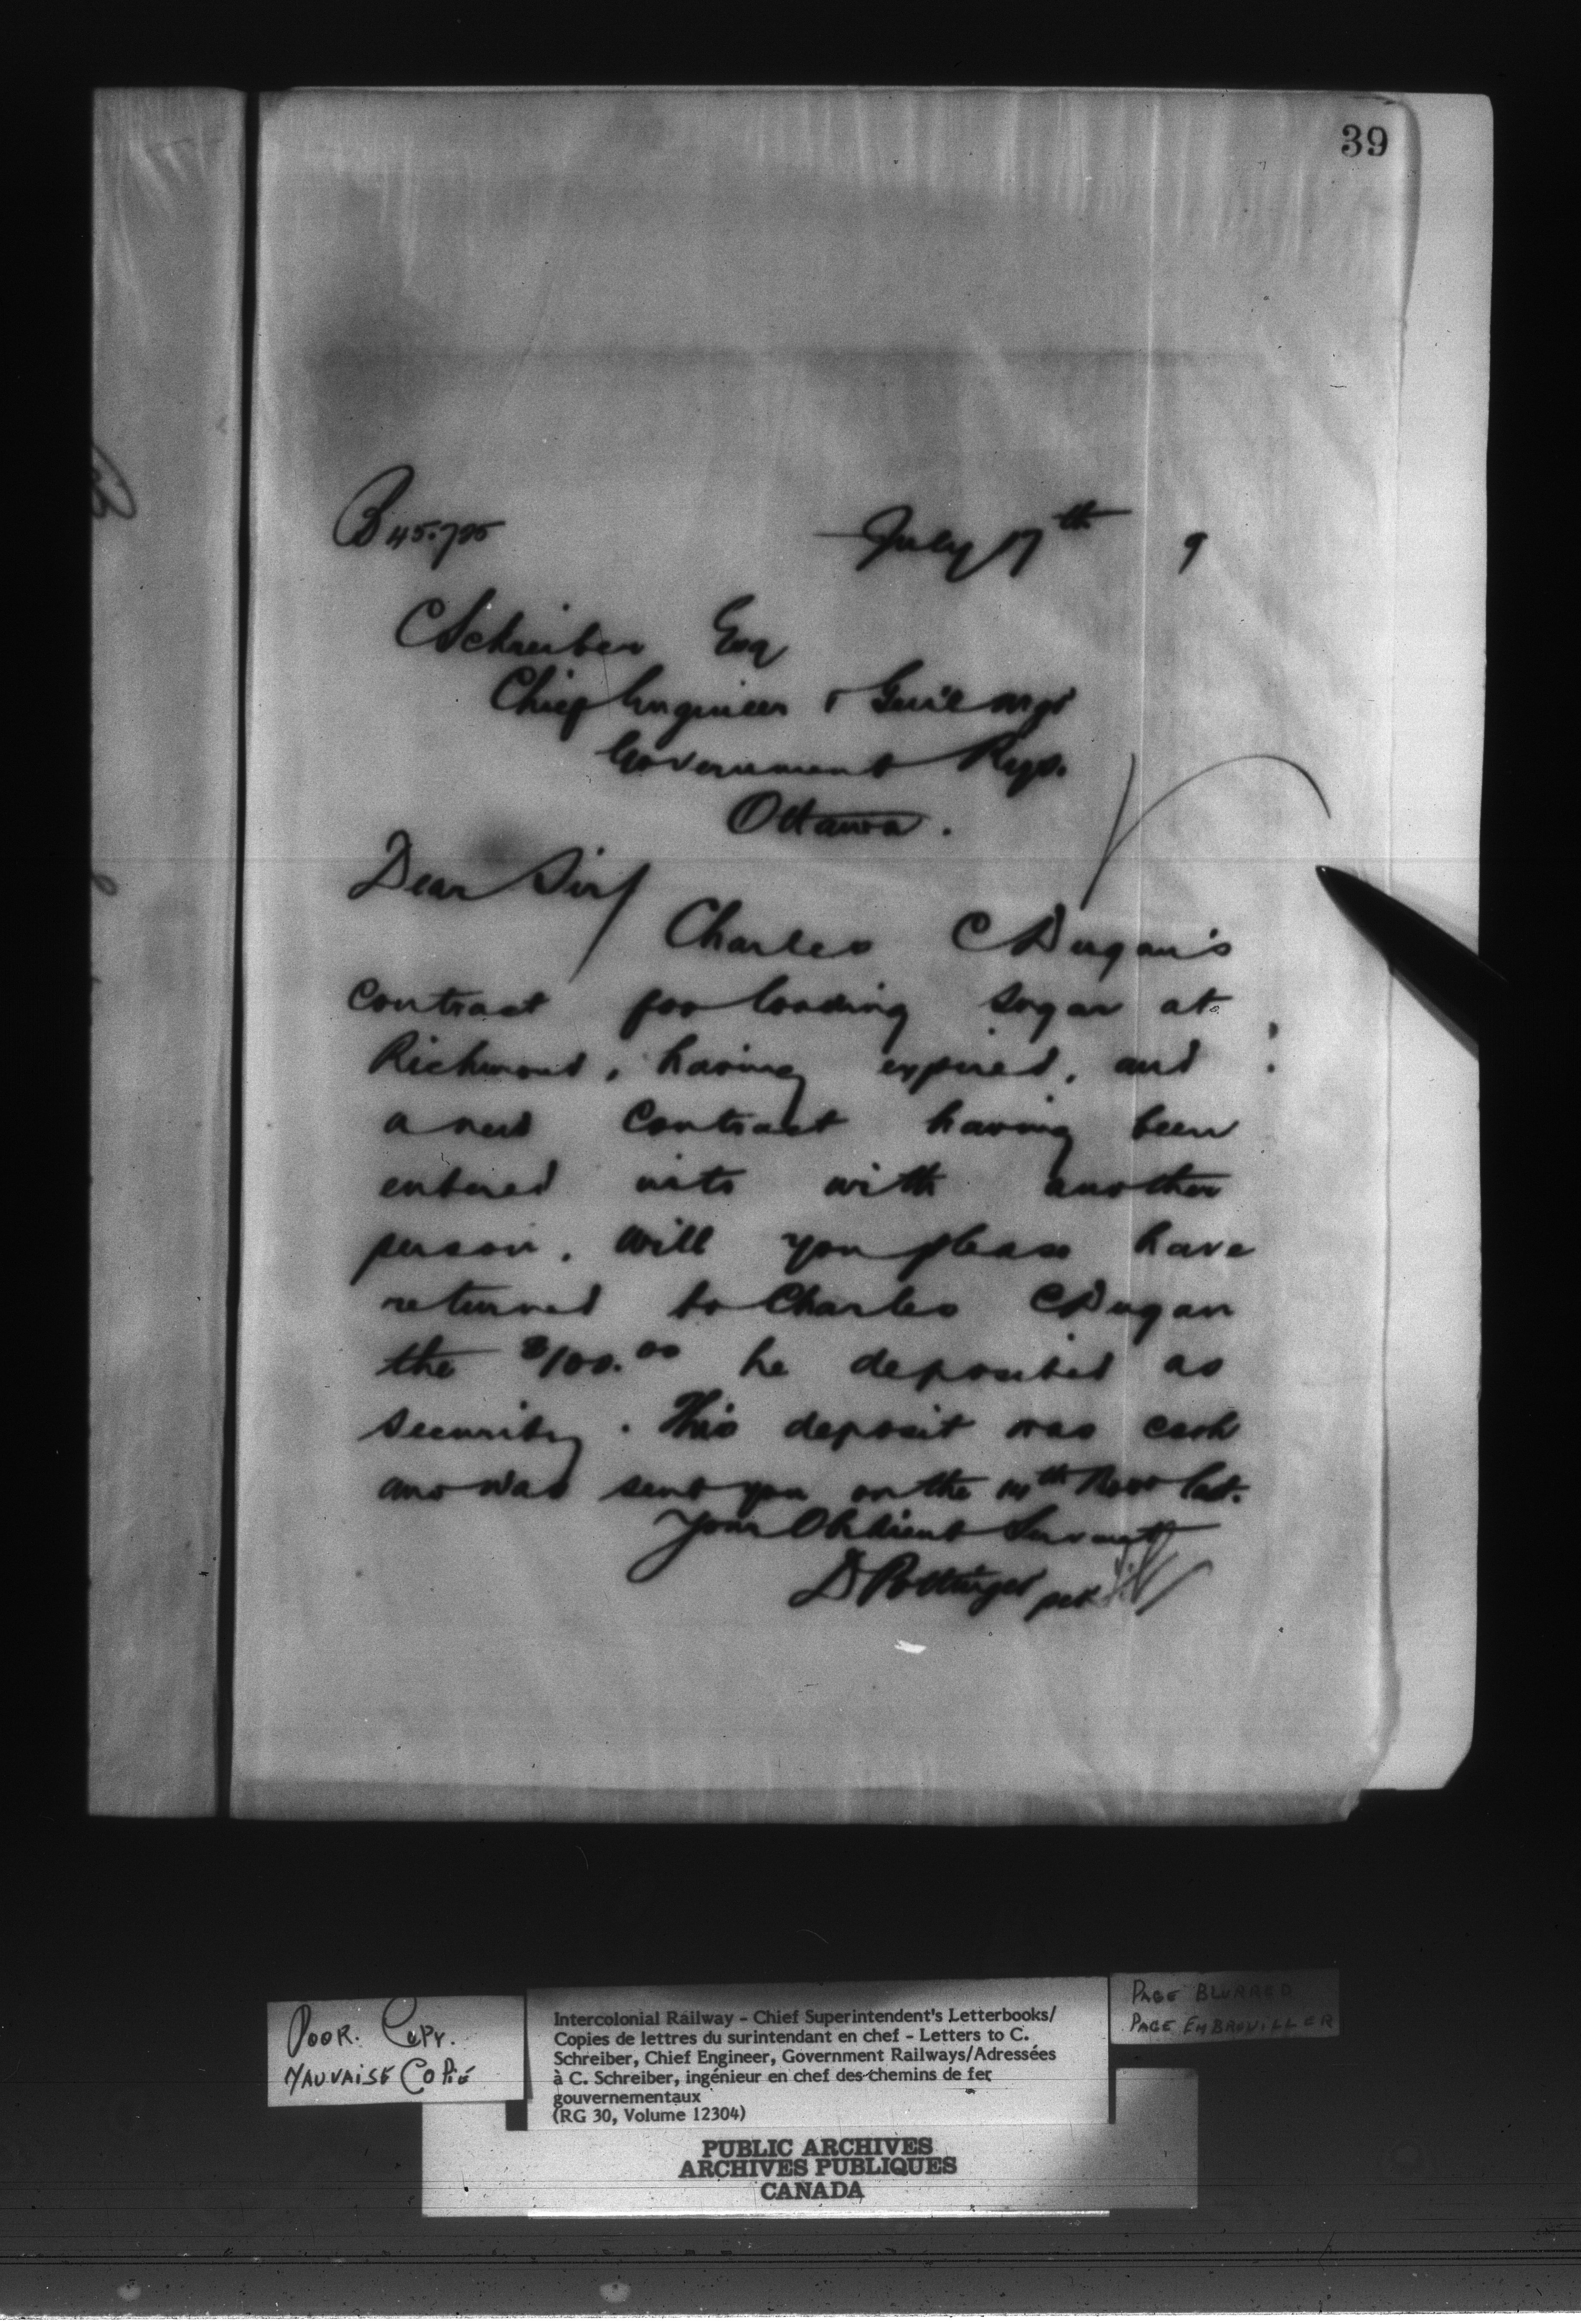 39
B 45.795
July 17th 9
C Schreiber Esq
Chief Engineer & Gen'l Mgr
Government Rys.
Ottawa.
Dear Sir/
Charles C Dugan's
contract for loading sugar at
Richmond, having expired, and
a new contract having been
entered into with another
person, will you please have
returned to Charles C Dugan
the $100.00 he deposited as
security. This deposit was cash
and was sent you on the th Nov last.
Your Obedient Servant
D Pottinger per
POOR. COPY.
MAUVAISE COPIE
Intercolonial Railway - Chief Superintendent's Letterbooks/
Copies de lettres du surintendant en chef - Letters to C.
Schreiber, Chief Engineer, Government Railways/Adressées
à C. Schreiber, ingénieur en chef des chemins de fer
gouvernementaux
(RG 30, Volume 12304)
PAGE BLURRED
PAGE EMBROUILLER
PUBLIC ARCHIVES
ARCHIVES PUBLIQUES
CANADA